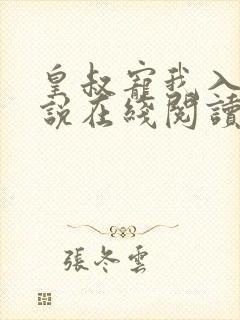 皇叔寵我入
說在綫閱讀
張冬雲